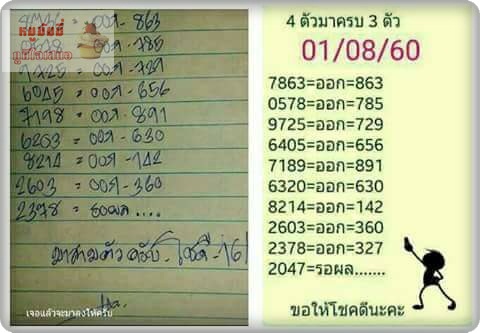 = ออก - 863
= ออก - 785
= ออก - 729
6045 = ออก - 656
7198 = ออก - 891
6203 = ออก - 630
8214 = ออก - 142
2603 = ออก - 360
2378 = รอผล ....
มาสามตัวครับ - โชคดี - 16
เจอแล้วจะมาลงให้ครับ
4 ตัวมาครบ 3 ตัว
01/08/60
7863=ออก=863
0578=ออก=785
9725=ออก=729
6405=ออก=656
7189=ออก=891
6320=ออก=630
8214=ออก=142
2603=ออก=360
2378=ออก=327
2047=รอผล.......
ขอให้โชคดีนะคะ